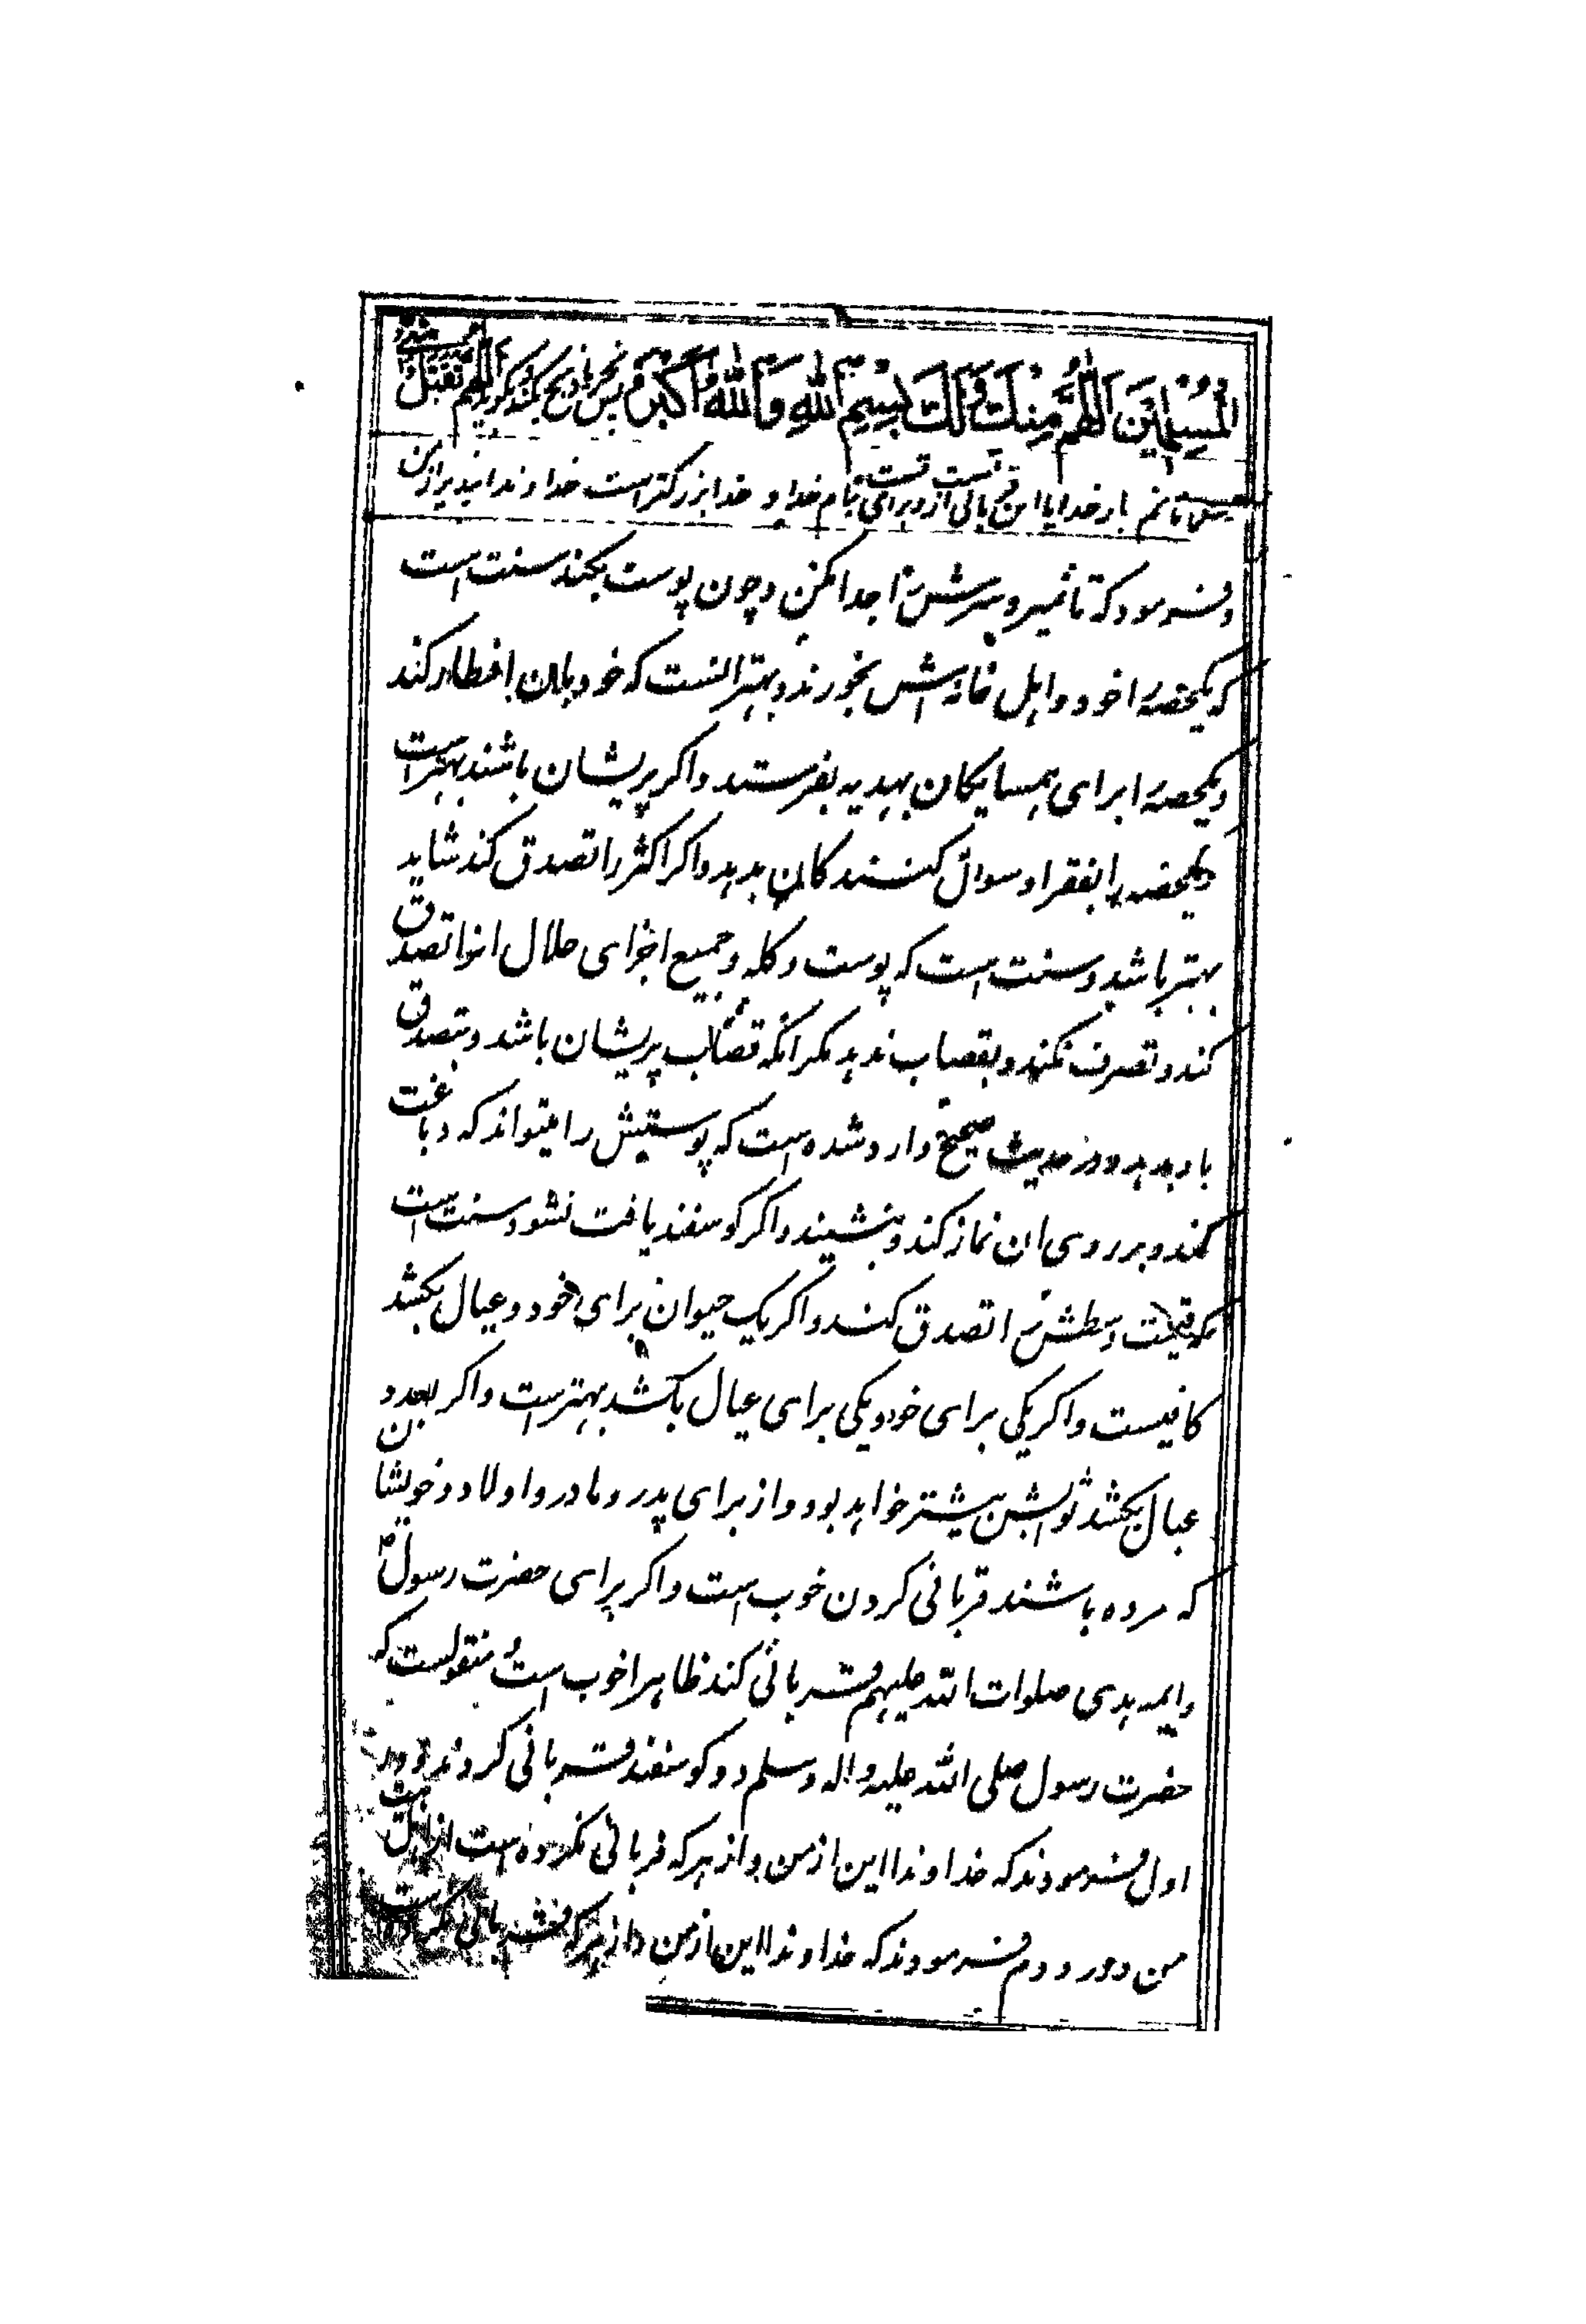 الْمُسْلِمِینَ اَللّٰهُمَّ مِنْكَ وَلَكَ بِسْمِ اللّٰهِ وَاللّٰهُ اَكْبَرُ پس نحر یا ذبح بکند و بکوید اَللّٰهُمَّ تَقَبَّلْ مِنّی
بار خدایا این قربانی از تست و برای تست بنام خدا و خدا بزرکتر است خداوندا بپذیر از من
و فرمود که تا نمیرد سرش را جدا مکن و چون پوست بکند سنت است
که یکحصه را خود و اهل خانه اش بخورند و بهتر انست که خود بان افطار کند
و یکحصه را برای همسایکان بهدیه بفرستد و اکر پریشان باشند بهتر است
و یکحصه را بفقرا و سوال کنندکان بدهد و اکر اکثر را تصدق کند شاید
بهتر باشد و سنت است که پوست و کله و جمیع اجزای حلال انرا تصدق
کند و تصرف نکند و بقصاب ندهد مکر انکه قصاب پریشان باشد و بتصدق
باو بدهد و در حدیث صحیح وارد شده است که پوستش را میتواند که دباغت
کند و بر روی ان نماز کند و بنشیند و اکر کوسفند یافت نشود سنت است
که قیمت وسطش را تصدق کند و اکر یک حیوان برای خود و عیال بکشد
کافیست و اکر یکی برای خود و یکی برای عیال بکشد بهتر است و اکر بعدد
عیال بکشد ثوابش بیشتر خواهد بود و از برای پدر و مادر و اولاد و خویشان
که مرده باشند قربانی کردن خوب است و اکر برای حضرت رسول ص
و ایمه هدی صلوات الله علیهم قربانی کند ظاهرا خوب است منقولست که
حضرت رسول صلی الله علیه و اله وسلم دو کوسفند قربانی کردند و در
اول فرمودند که خداوندا این از من و از هر که قربانی نکرده است از اهل بیت
من و در دوم فرمودند که خداوندا این از من و از هر که قربانی نکرده است